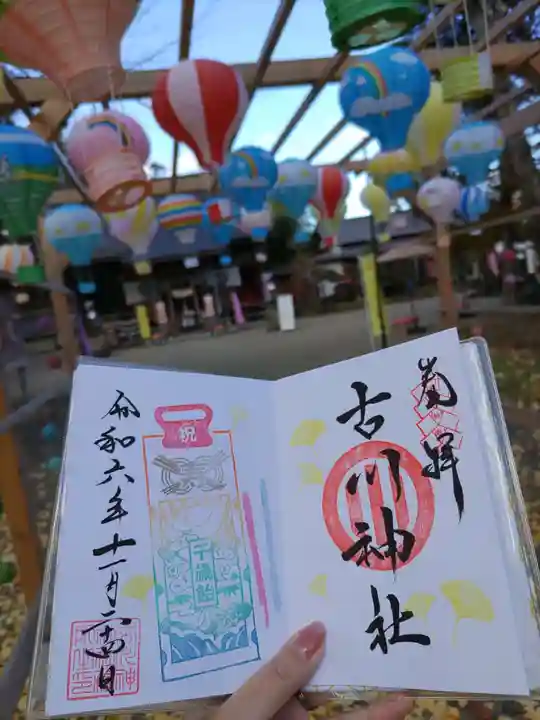 奉拝
古川神社
祝
千歳飴
令和六年十一月二十四日